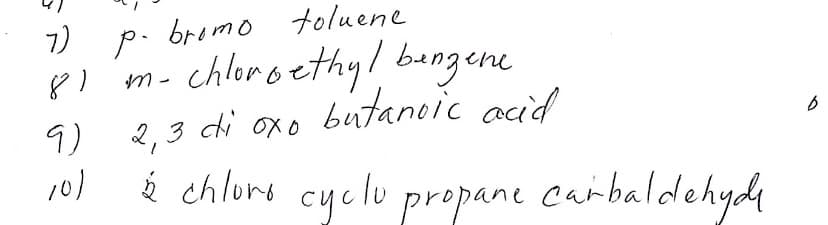 7) p. bromo toluene
8) m- chloroethyl benzene
9) 2,3 di oxo butanoic acid
10) 2 chloro cyclo propane carbaldehyde